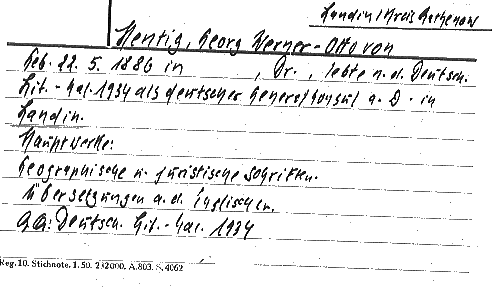 Landin / Kreis Rathenow
Hentig, Georg Werner-Otto von
Geb. 22. 5. 1886 in , Dr., lebte n. d. Deutsch.
Lit.-Kal. 1934 als deutscher Generalkonsul a. D. in
Landin.
Hauptwerke:
Geographische u. juristische Schriften.
Übersetzungen a. d. Englischen.
QQ: Deutsch. Lit.-Kal. 1934
Reg. 10. Stichnote. 1. 50. 232000. A.803. S. 4062